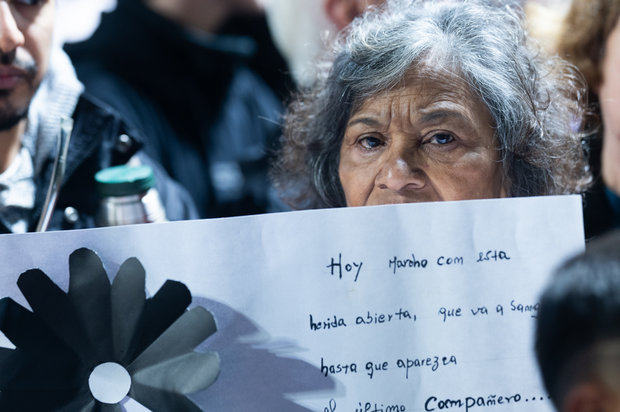 Hoy Marcho com esta
herida abierta, que va a
hasta que aparezca
el último Compañero....